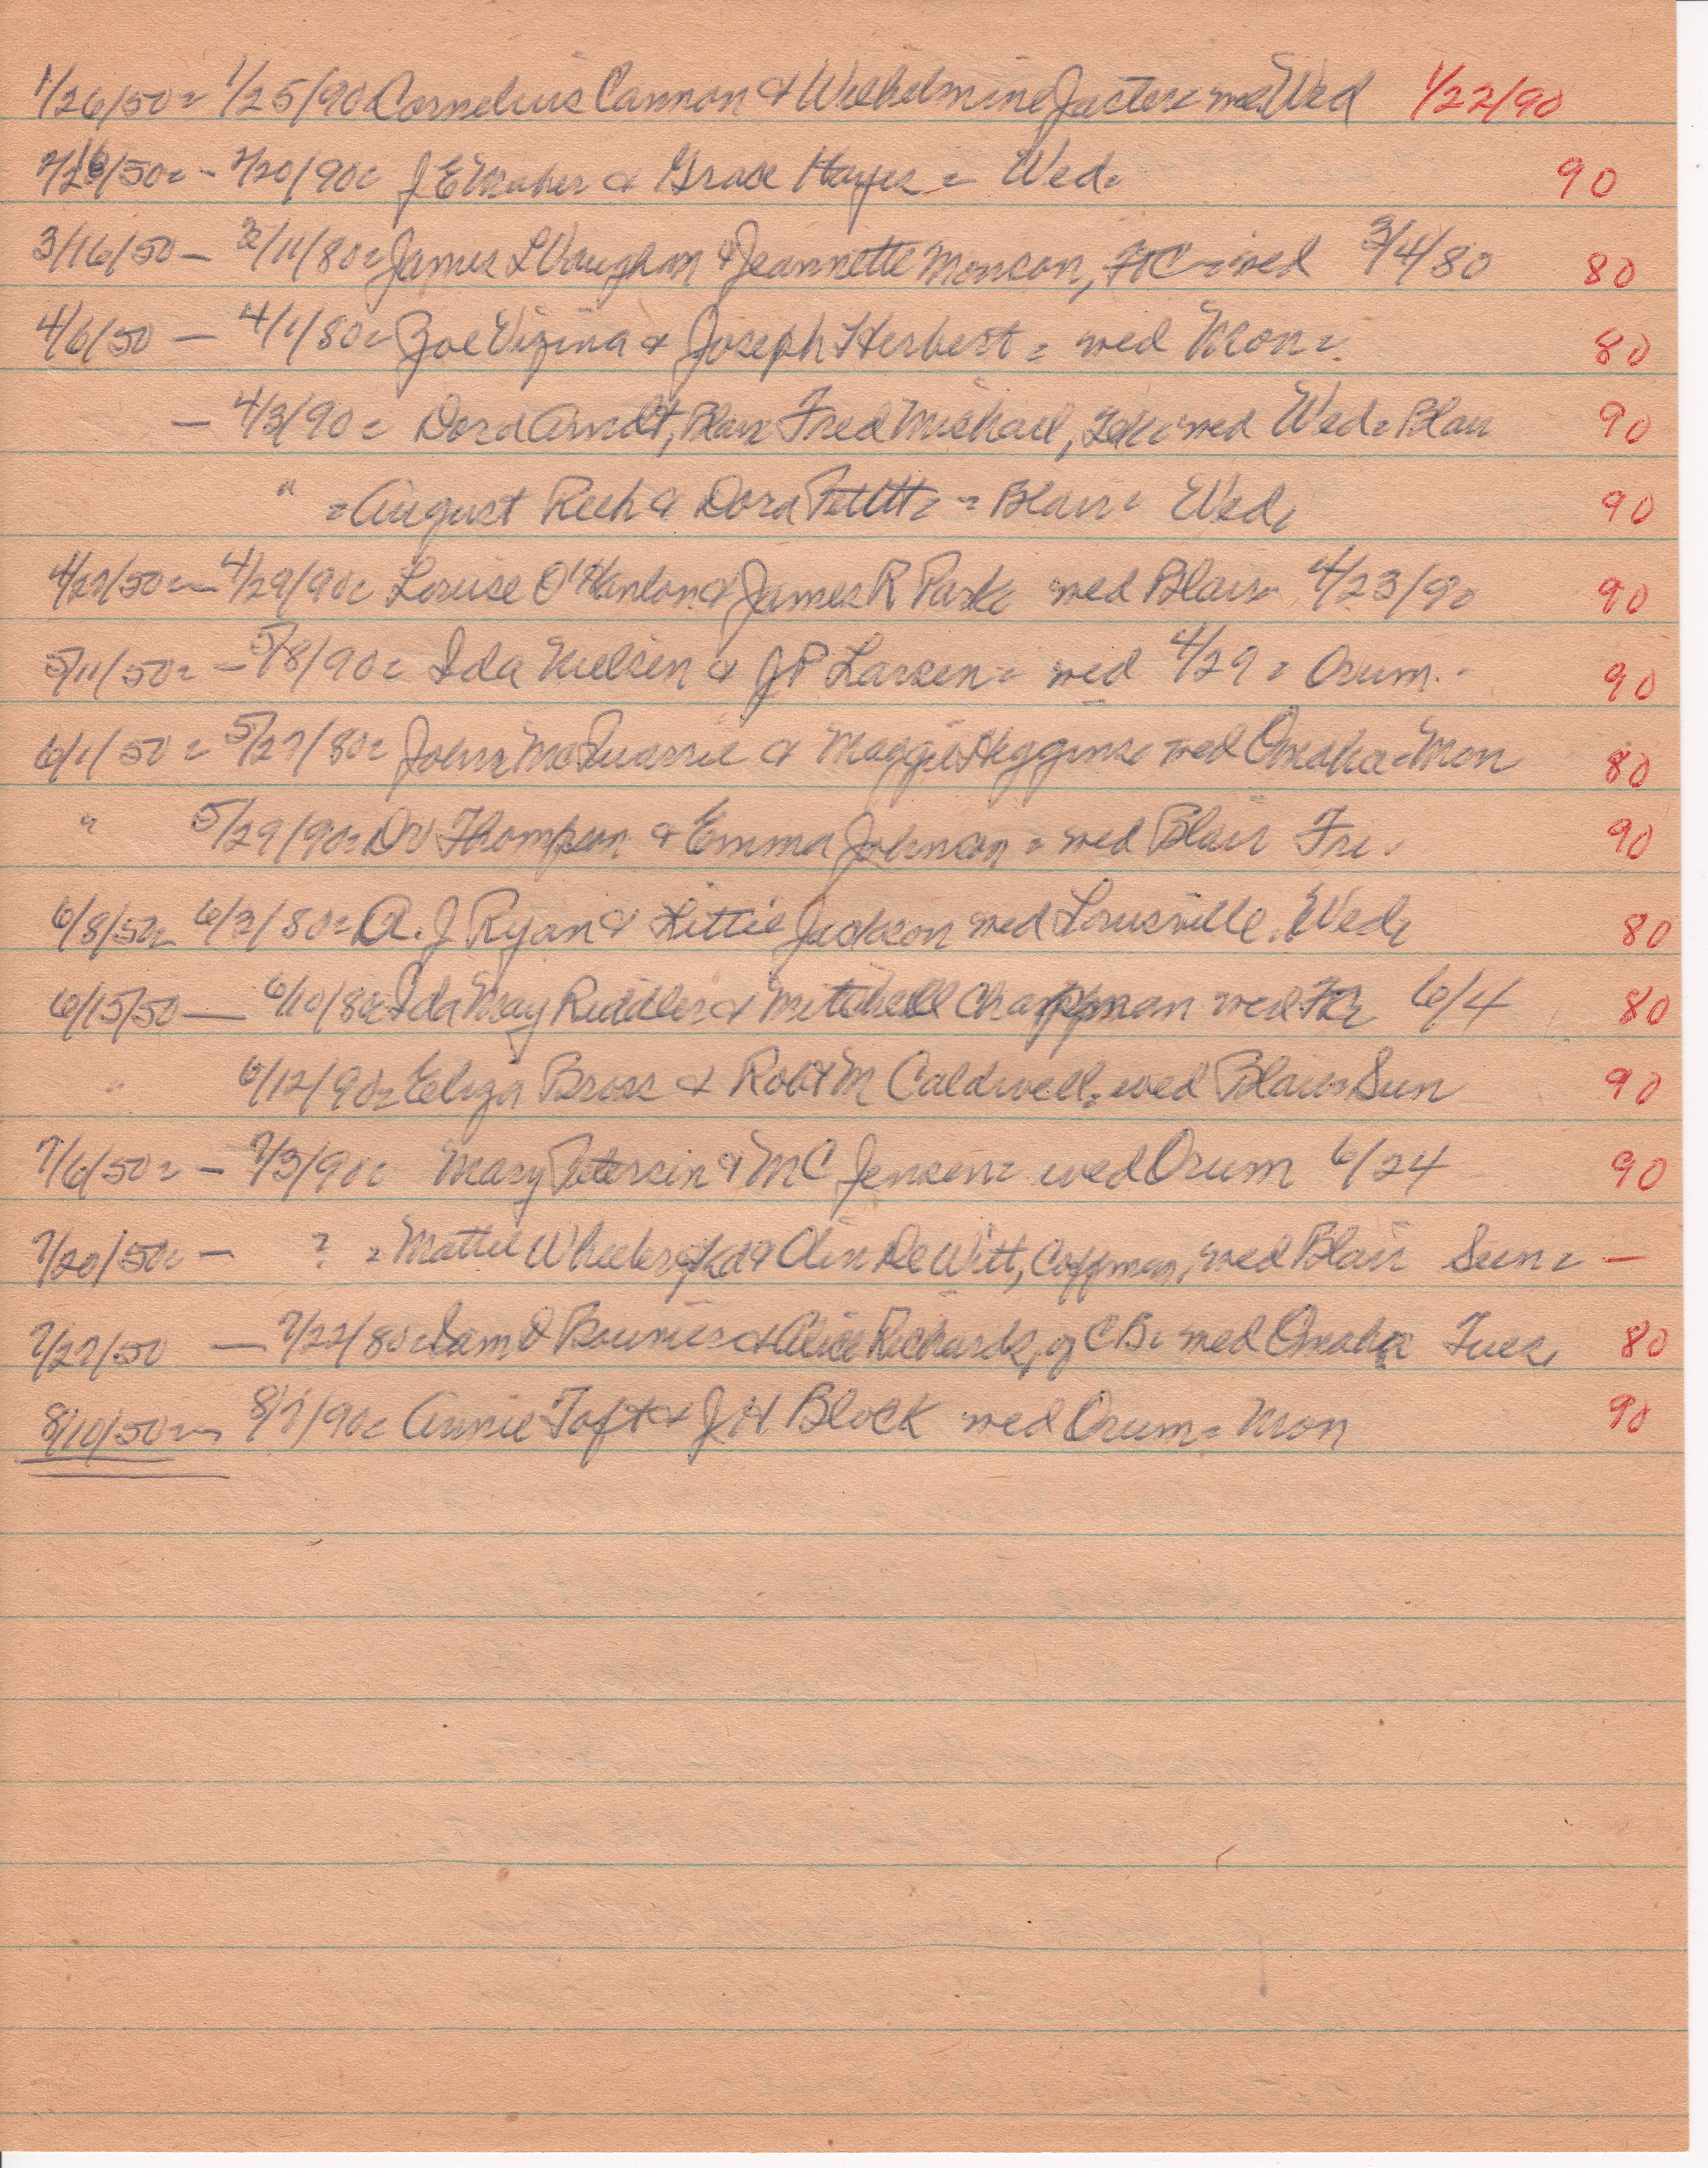 1/26/50 = 1/25/90 Cornelius Cannon & Wilhelmine Jacter = wed Wed 1/22/90
2/16/50 = - 2/20/90 = J E Maher & Grace Hayes = Wed = 90
3/16/50 - 3/11/80 = James L Vaughan & Jeannette Monson, FtC = wed 3/4/80 80
4/6/50 - 4/1/80 = Zoe Vizina & Joseph Herbert = wed Mon = 80
- 4/3/90 = Dora Arndt, Blair Fred Michael, wed Wed = Blair 90
" = August Rech & Dora = Blair = Wed, 90
4/27/50 = - 4/29/90 = Louise O'Hanlon & James R Park wed Blair 4/23/90 90
5/11/50 = - 5/8/90 = Ida Nielsen & J P Larsen = wed 4/29 = Orum. - 90
6/1/50 = 5/27/80 = John McQuarrie & Maggie Higgins = wed Omaha = Mon 80
" 5/29/90 = Dr Thompson & Emma Johnson = wed Blair Fri. 90
6/8/50 6/3/80 = A. J Ryan & Littie Jackson wed Louisville. Wed, 80
6/15/50 - 6/10/80 = Ida May Riddler & Mitchell Chappman wed 6/4 80
" 6/12/90 = Eliza Bross & Robt M Caldwell = wed Blair = Sun 90
7/6/50 = - 7/3/90 = Mary Petersen & M C Jensen = wed Orum 6/24 90
7/20/50 = - ? = Mattie Wheeler, & Olin DeWitt, Coffman, wed Blair Sun = -
7/27/50 - 7/22/80 = Sam D & Alice Richards, of CB = wed Omaha Tues, 80
8/10/50 = 8/7/90 = Annie Toft & J H Block wed Orum = Mon 90